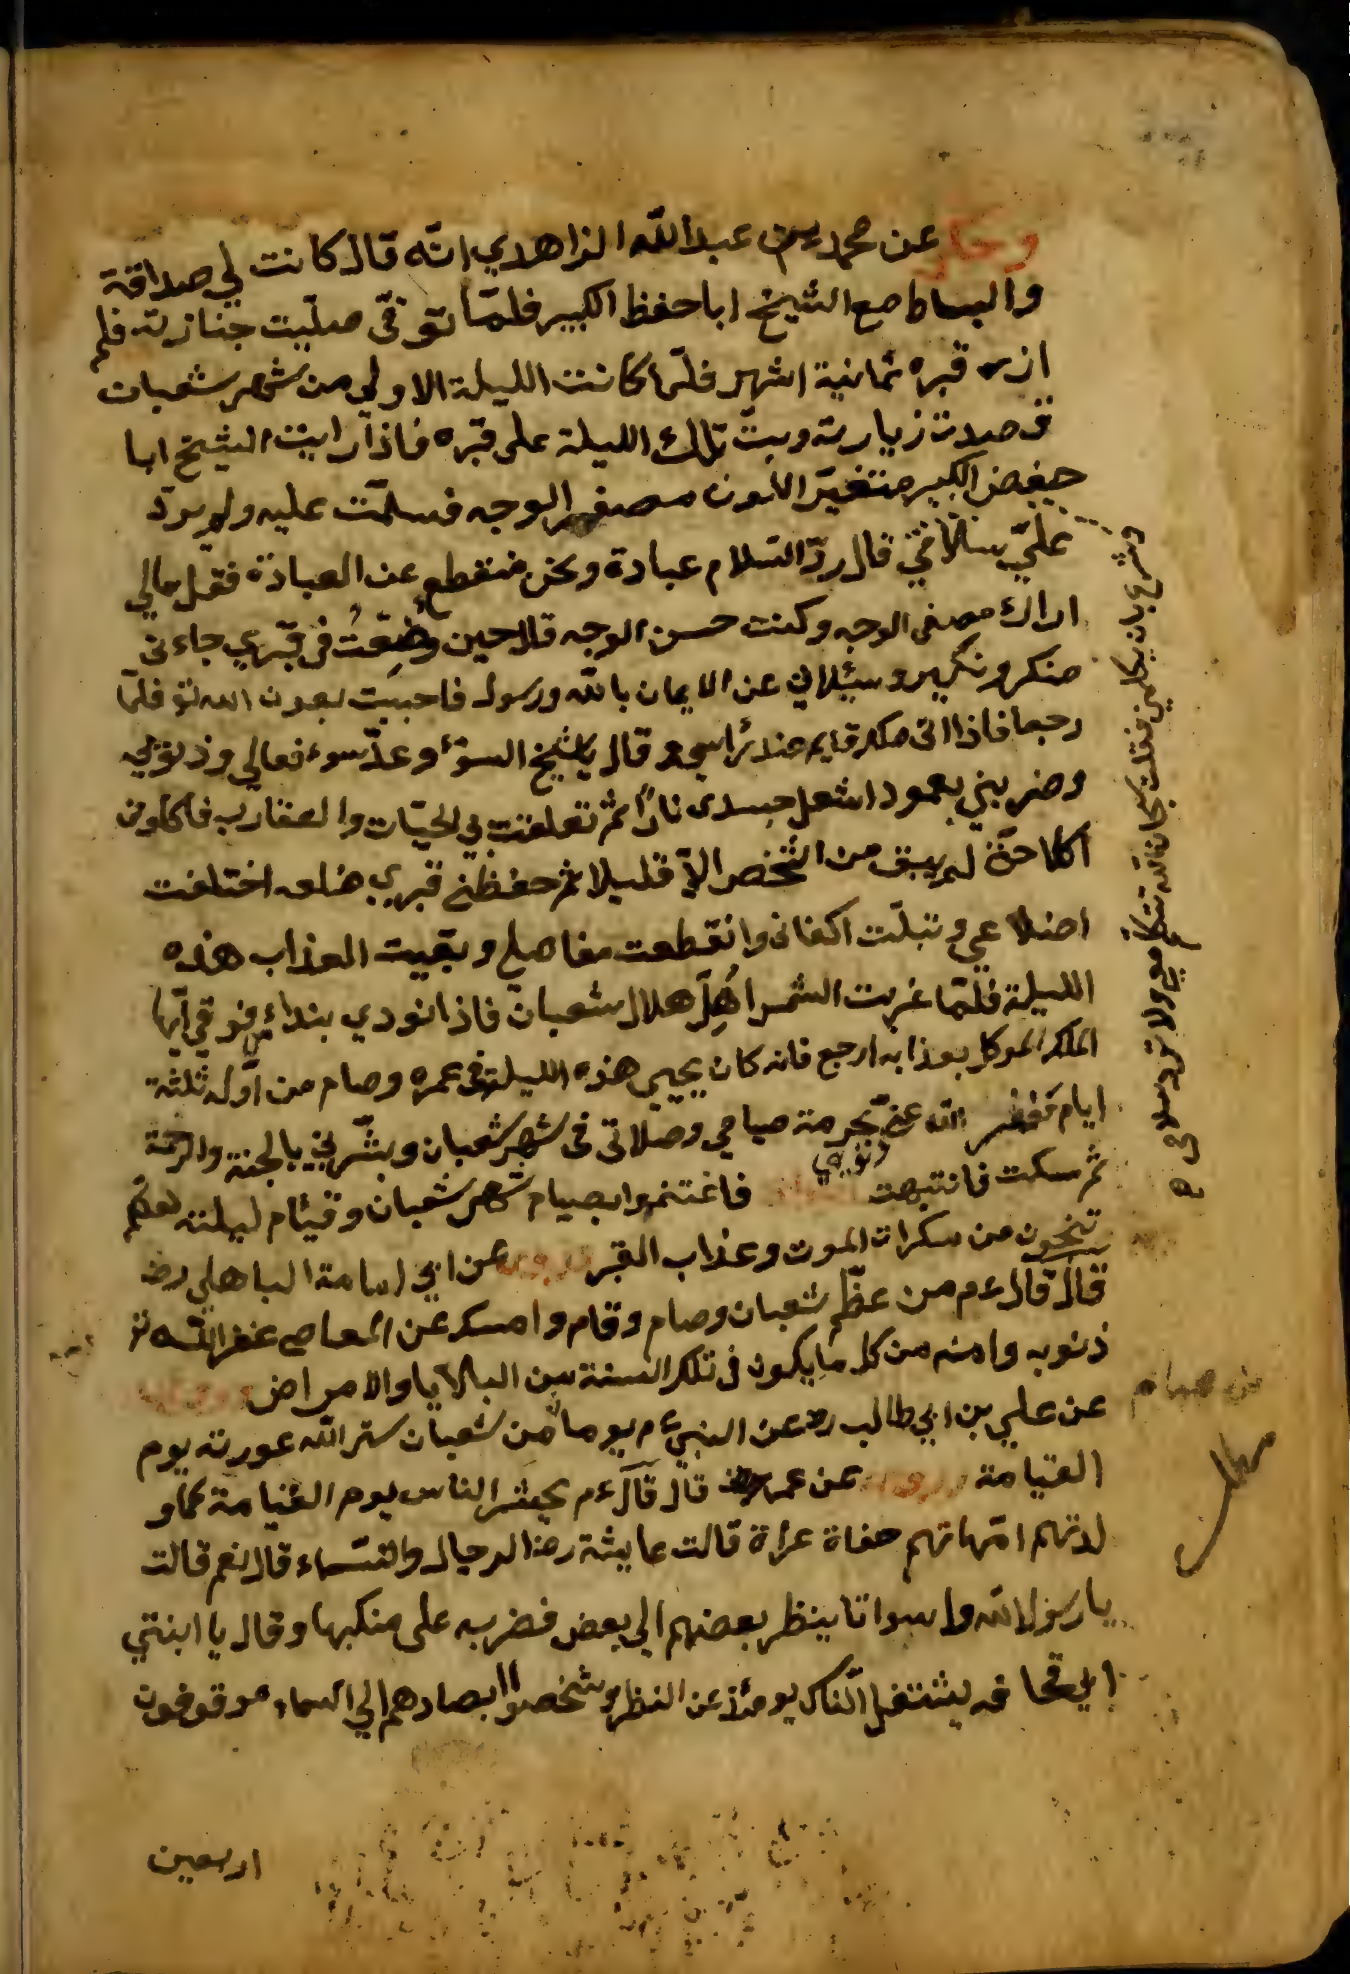 وحكي عن محمد بن عبد الله الزاهدي انّه قال كانت لي صداقة
والبساط مع الشيخ ابا حفظ الكبير فلمّا توفّي صلّيت جنازته فلم
ازر قبره ثمانية اشهر فلمّا كانت الليلة الاولي من شهر شعبان
قصدت زيارته وبتّ تلك الليلة على قبره فاذا رايت الشيخ ابا
حفض الكبير متغيّر اللون مصفر الوجه فسلّمت عليه ولم يردّ
عليّ سلامي قال ردّ السّلام عبادة ونحن منقطع عن العبادة فقل مالي
اراك مصفر الوجه وكنت حسن الوجه قال حين وُضِعْتُ في قبري جاءني
منكر ونكير وسئلاني عن الايمان بالله ورسوله فاجبت بعون الله تع فلمّا
رجعا فاذا اتى ملك قايم عند رأسي وقال يا شيخ السوّء وعدّ سوء فعالي وذنوبي
وضربني بعمود اشعل جسدى نارًا ثم تعلقت بي الحيّات والعقارب فاكلوني
اكلا حتّى لم يبق من الشّخص الاّ قليلا ثم حفظني قبري ضلعه اختلفت
اضلاعي وتبلّت اكفانى وانقطعت مفاصلي وبقيت العذاب هذه
الليلة فلمّا غربت الشمس اُهِلّ هلال شعبان فاذا نودي بنداء من فوقي ايّها
الملك الموكل بعذابه ارجع فانه كان يحيي هذه الليلة في عمره وصام من اوّله ثلثة
ايام فغفر الله عنّي بحرمة صيامي وصلاتى في شهر شعبان وبشّرني بالجنة والرحمة
ثم سكت فانتبهت فاغتنموا بصيام شهر شعبان وقيام ليلته لعلكم
تنجون من سكرات الموت وعذاب القبر وروى عن ابي امامة الباهلي رضـ
قال قال عم من عظّم شعبان وصام وقام وامسك عن المعاصي غفر الله تع
ذنوبه وامنه من كل ما يكون في تلك السنة من البلايا والامراض
عن علي بن ابي طالب رضـ عن النبي عم يوما من شعبان ستر الله عورته يوم
القيامة وروى عن عمر رضـ قال قال عم يحشر الناس يوم القيامة كما و
لدتهم امّهاتهم حفاة عراة قالت عايشة رضـ الرجال والنّساء قال نعم قالت
يا رسول الله واسواتا ينظر بعضهم الي بعض فضربه على منكبها وقال يا ابنتي
يشتغل النّاس يومئذ عن النظر وشخصوا ابصارهم الي السماء موقوفون
اربعين
وشرع بان يكلمني فقلت سبحان الله تتكلّم معي ولا تردّ سلامي
من صيام